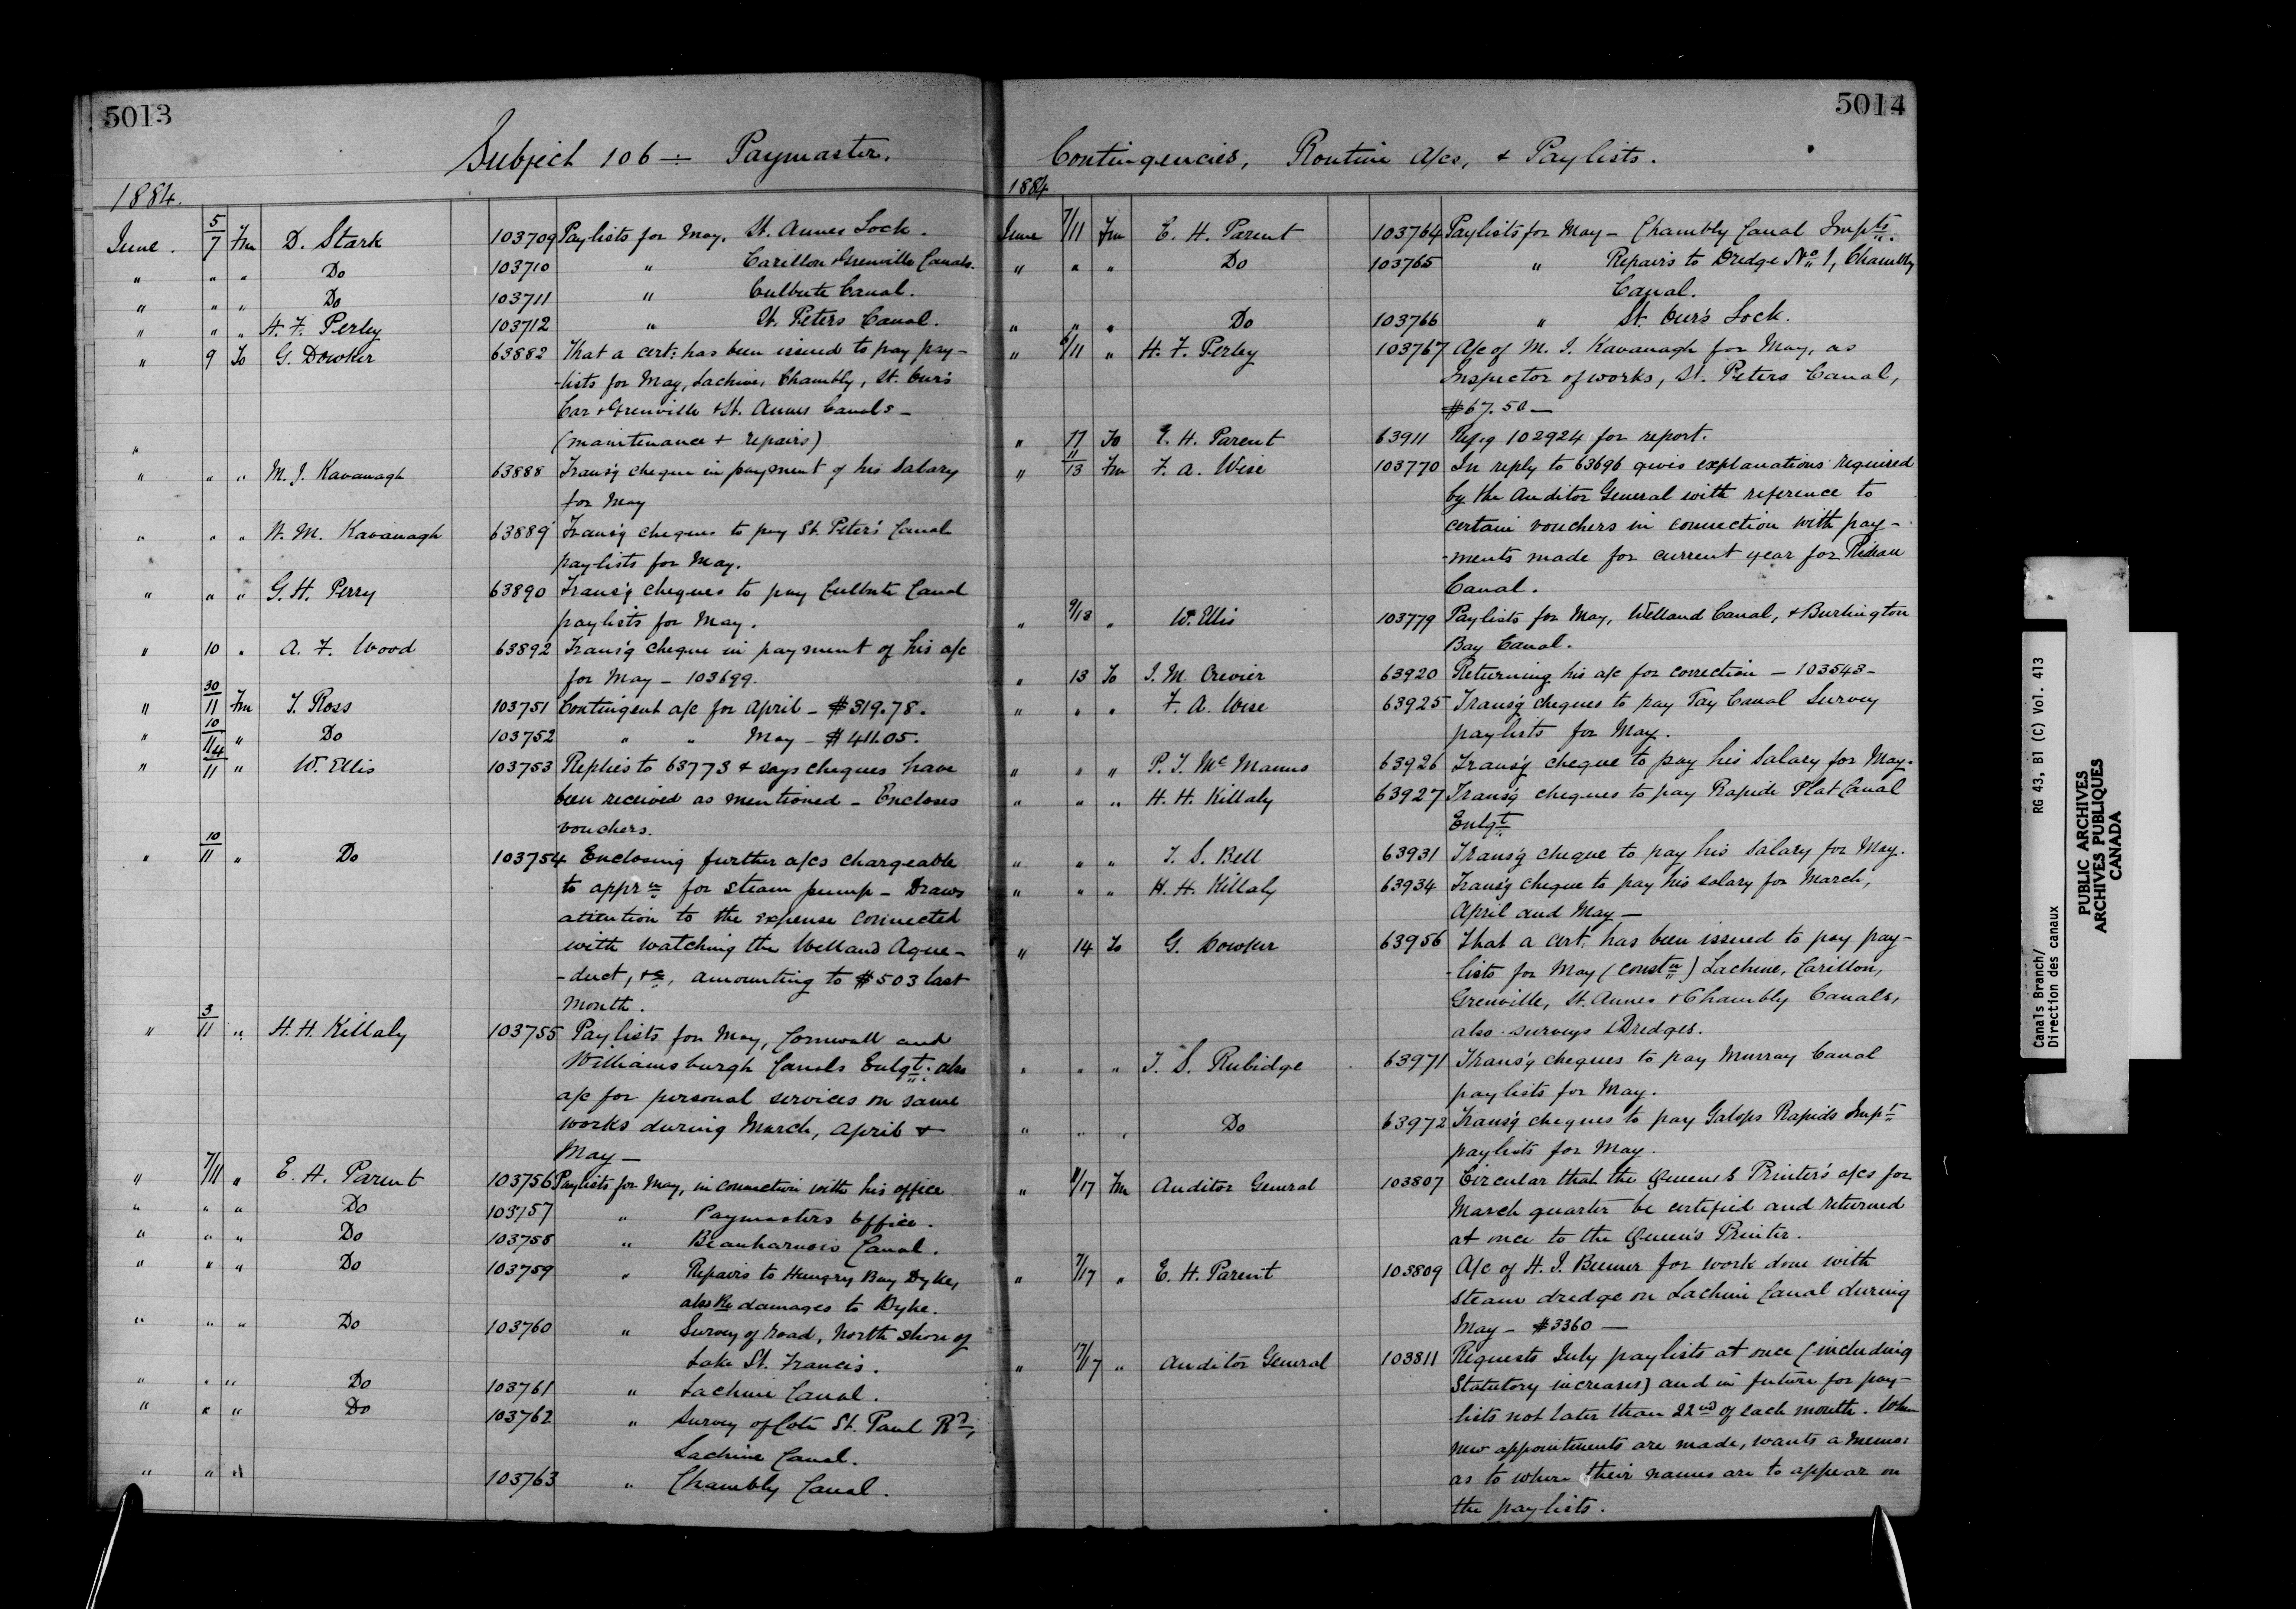 5013
Subject 106 — Paymaster.
1884.
June. 5/7 Fm D. Stark 103709 Paylists for May, St. Annes Lock.
" " " Do 103710 " Carillon & Grenville Canals.
" " " Do 103711 " Culbute Canal.
" " " H. F. Perley 103712 " St. Peters Canal.
" 9 To G. Dowker 63882 That a cert: has been issued to pay pay-
-lists for May, Lachine, Chambly, St. Ours
Car & Grenville & St. Annes Canals -
" (maintenance & repairs)
" " " M. J. Kavanagh 63888 Trans'g cheque in payment of his Salary
for May
" " " W. M. Kavanagh 63889 Trans'g cheques to pay St. Peter's Canal
paylists for May.
" " " G. H. Perry 63890 Trans'g cheques to pay Culbute Canal
paylists for May.
" 10 " A. F. Wood 63892 Trans'g cheque in payment of his a/c
for May - 103699.
" 30/11 Fm J. Ross 103751 Contingent a/c for April - $319.78.
" 10/11 " Do 103752 " " May - $411.05.
" 4/11 " W. Ellis 103753 Replies to 63773 & says cheques have
been received as mentioned - Encloses
vouchers.
" 10/11 " Do 103754 Enclosing further a/cs chargeable
to apprn for steam pump - Draws
attention to the expense connected
with watching the Welland Aque-
-duct, &c, amounting to $503 last
month.
" 3/11 " H. H. Killaly 103755 Paylists for May, Cornwall and
Williamsburgh Canals Enlgt. also
a/c for personal services on same
works during March, April &
May -
" 7/11 " E. H. Parent 103756 Paylists for May, in connection with his office
" " " Do 103757 " Paymasters office.
" " " Do 103758 " Beauharnois Canal.
" " " Do 103759 " Repairs to Hungry Bay Dyke,
also Re damages to Dyke.
" " " Do 103760 " Survey of road, North shore of
Lake St. Francis.
" " " Do 103761 " Lachine Canal.
" " " Do 103762 " Survey of Cote St. Paul Rd,
Lachine Canal.
" " " 103763 " Chambly Canal.
5014
Contingencies, Routine A/cs, & Paylists.
1884
June 7/11 Fm E. H. Parent 103764 Paylists for May - Chambly Canal Impts.
" " " Do 103765 " Repairs to Dredge No 1, Chambly
Canal.
" " " Do 103766 " St. Ours Lock.
" 6/11 " H. F. Perley 103767 A/c of M. J. Kavanagh for May, as
Inspector of works, St. Peters Canal,
$67.50 -
" 11 To E. H. Parent 63911 Ref'g 102924 for report.
" 11/13 Fm F. A. Wise 103770 In reply to 63696 gives explanations required
by the Auditor General with reference to
certain vouchers in connection with pay-
-ments made for current year for Rideau
Canal.
" 9/13 " W. Ellis 103779 Paylists for May, Welland Canal, & Burlington
Bay Canal.
" 13 To J. M. Crevier 63920 Returning his a/c for correction - 103543 -
" " " F. A. Wise 63925 Trans'g cheques to pay Tay Canal Survey
paylists for May.
" " " P. J. McManus 63926 Trans'g cheque to pay his Salary for May.
" " " H. H. Killaly 63927 Trans'g cheques to pay Rapide Plat Canal
Enlgt
" " " T. S. Bell 63931 Trans'g cheque to pay his Salary for May.
" " " H. H. Killaly 63934 Trans'g cheque to pay his salary for March,
April and May -
" 14 To G. Dowker 63956 That a cert. has been issued to pay pay-
-lists for May (constn) Lachine, Carillon,
Grenville, St. Annes & Chambly Canals,
also surveys & Dredges.
" " " T. S. Rubidge 63971 Trans'g cheques to pay Murray Canal
paylists for May.
" " " Do 63972 Trans'g cheques to pay Galops Rapids Impt
paylists for May.
" 11/17 Fm Auditor General 103807 Circular that the Queen's Printer's a/cs for
March quarter be certified and returned
at once to the Queen's Printer.
" 7/17 " E. H. Parent 103809 A/c of H. J. Beemer for work done with
steam dredge on Lachine Canal during
May - $3360 -
" 17/17 " Auditor General 103811 Requests July paylists at once (including
Statutory increases) and in future for pay-
-lists not later than 22nd of each month. When
new appointments are made, wants a memo:
as to where their names are to appear on
the paylists.
Canals Branch/ RG 43, B1 (C) Vol. 413
Direction des canaux
PUBLIC ARCHIVES
ARCHIVES PUBLIQUES
CANADA